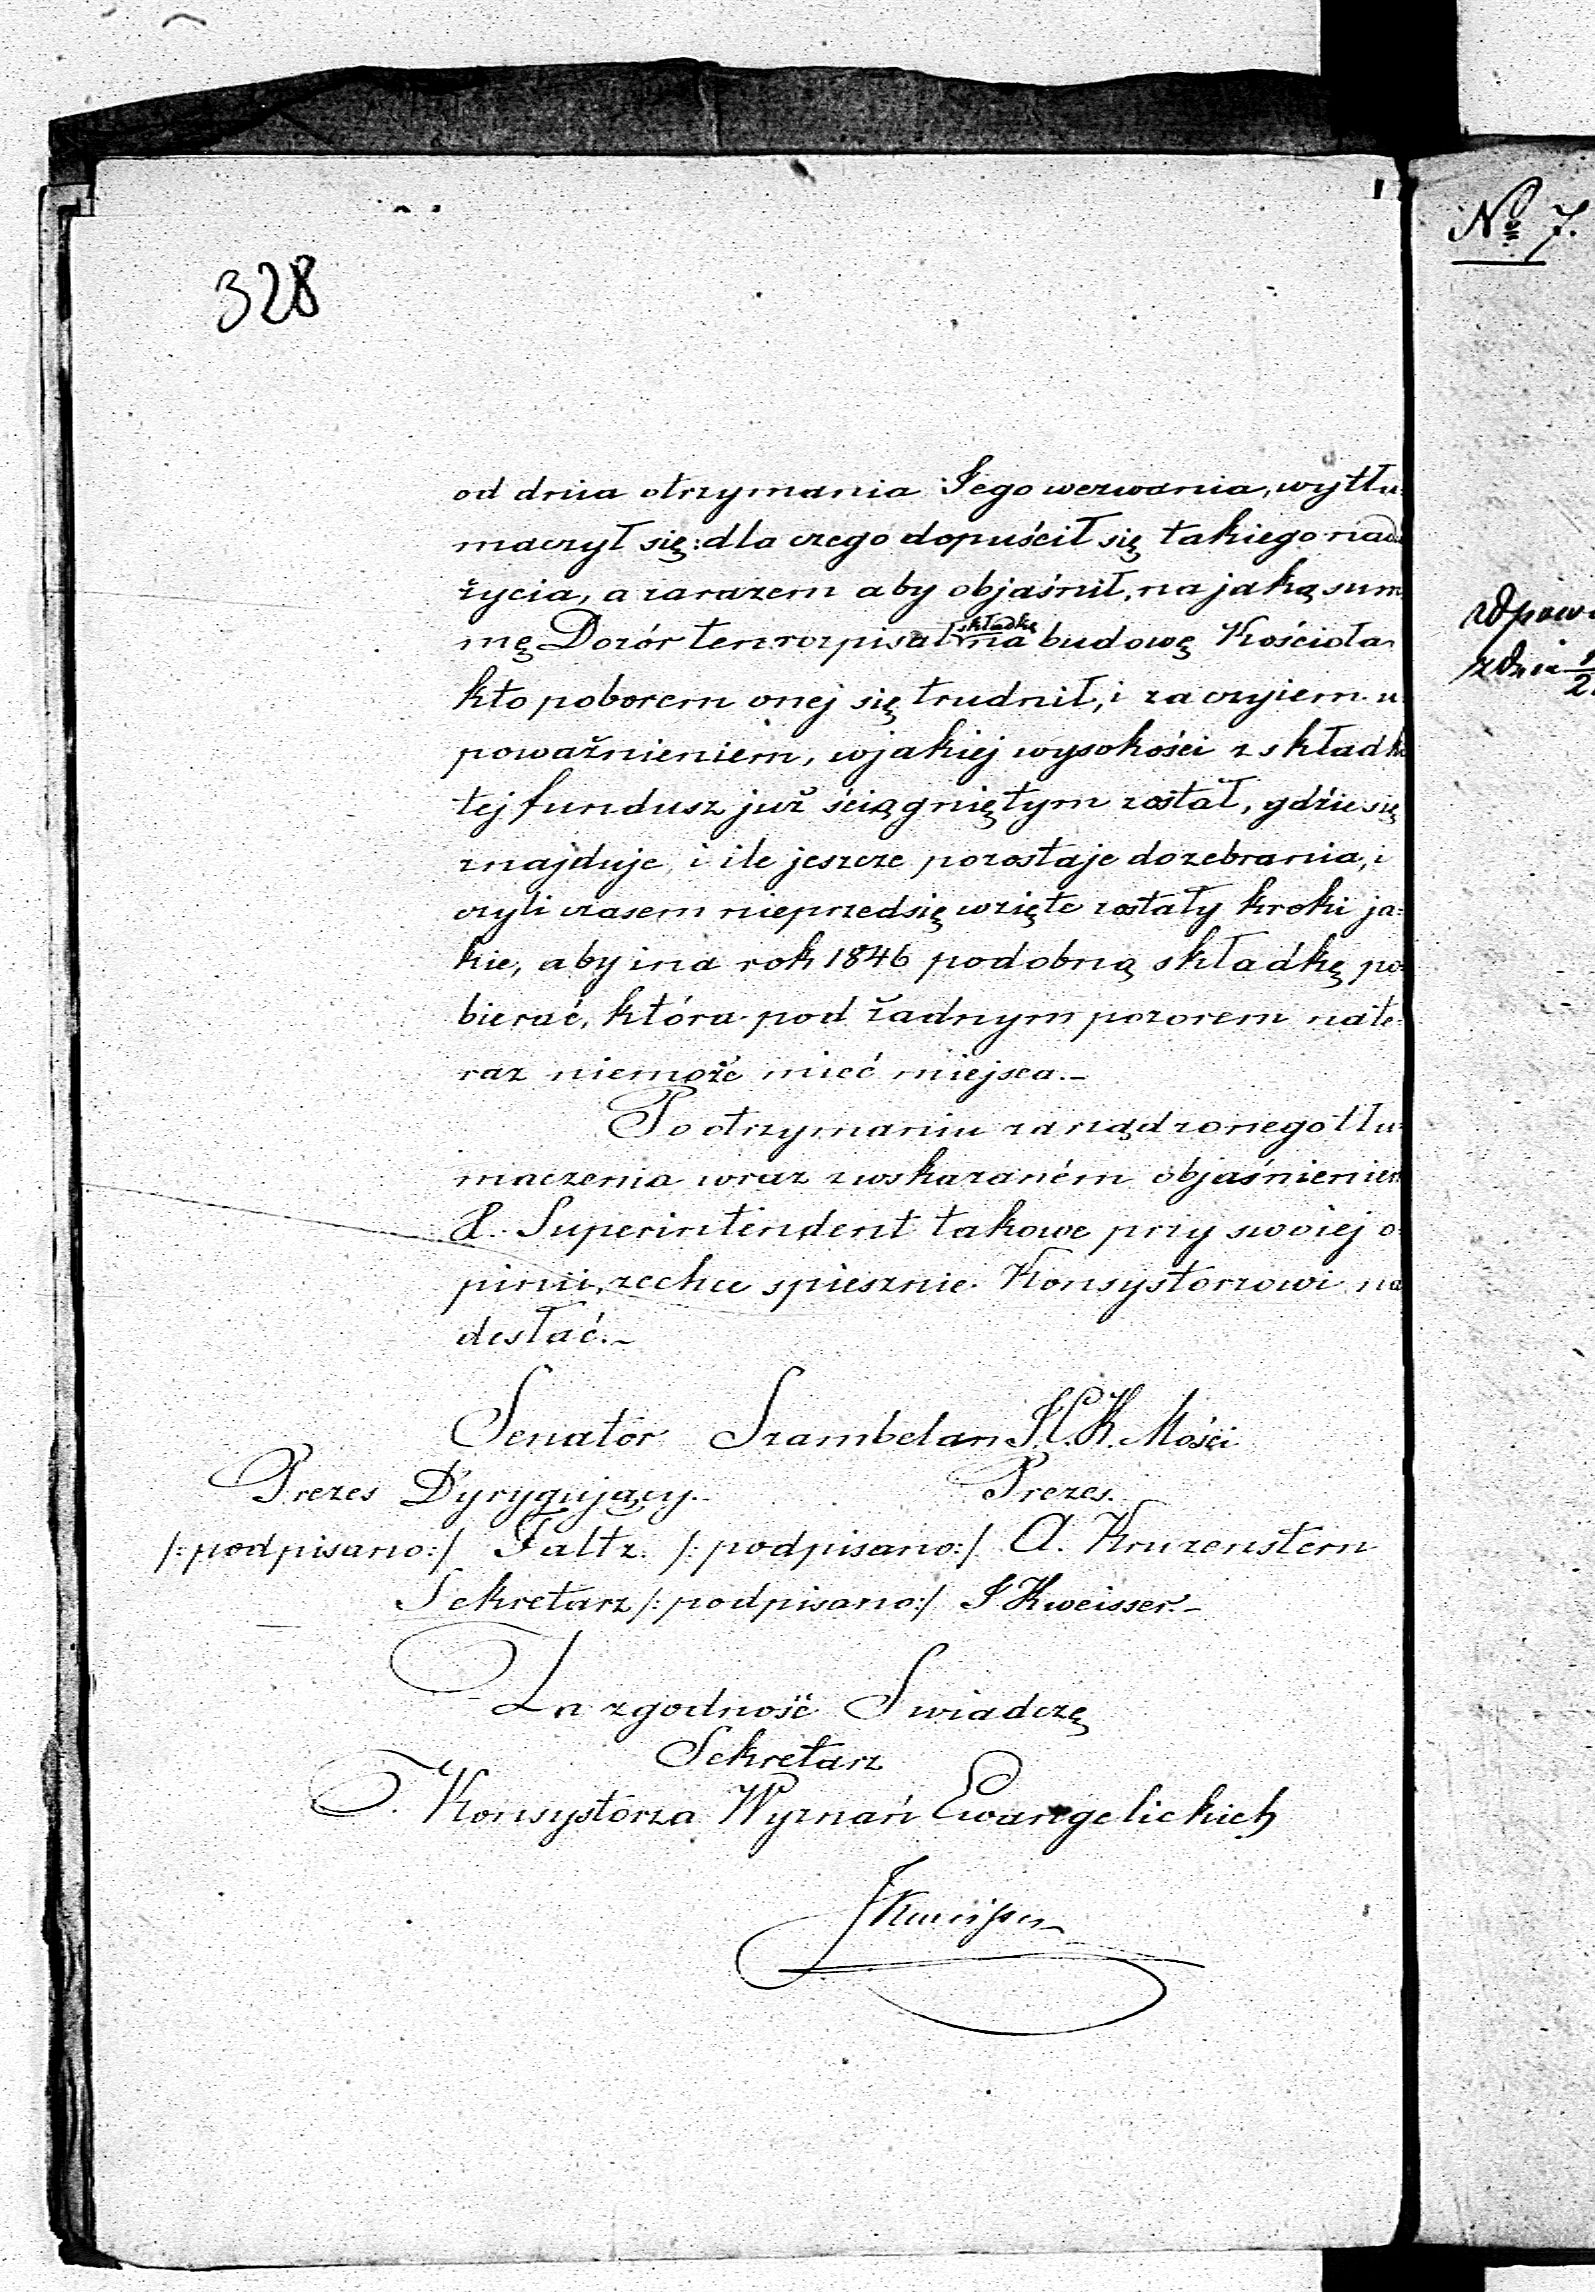 328
od dnia otrzymania Jego wezwania, wytłu=
maczył się: dla czego dopuścił się takiego nadu
życia, a zarazem aby objaśnił, na jaką sum
mę Dozór ten rozpisał składkę na budowę Kościoła
kto poborem onej się trudnił, i za czyiem u=
poważnieniem, w jakiej wysokości z składki
tej fundusz już ściągniętym został, gdzie się
znajduje, i ile jeszcze pozostaje do zebrania, i
czyli czasem nieprzedsięwzięte zostały kroki ja=
kie, aby i na rok 1846 podobną składkę po
bierać, która pod żadnym pozorem nate=
raz niemoże mieć miejsca.–
Po otrzymaniu zarządzonego tłu=
maczenia wraz z wskazaném objaśnieniem
X. Superintendent takowe przy swoiej o=
pinii, zechce spiesznie Konsystorzowi na
desłać.–
Senator Szambelan J.C.K. Mości
Prezes Dyrygujący. Prezes.
/:podpisano:/ Faltz. /:podpisano:/ A. Kruzenstern
Sekretarz /:podpisano:/ J Kweisser.–
Za zgodność Swiadczę
Sekretarz
Konsystorza Wyznań Ewangelickich
JKweisser
No 7.
odpow
z dnia